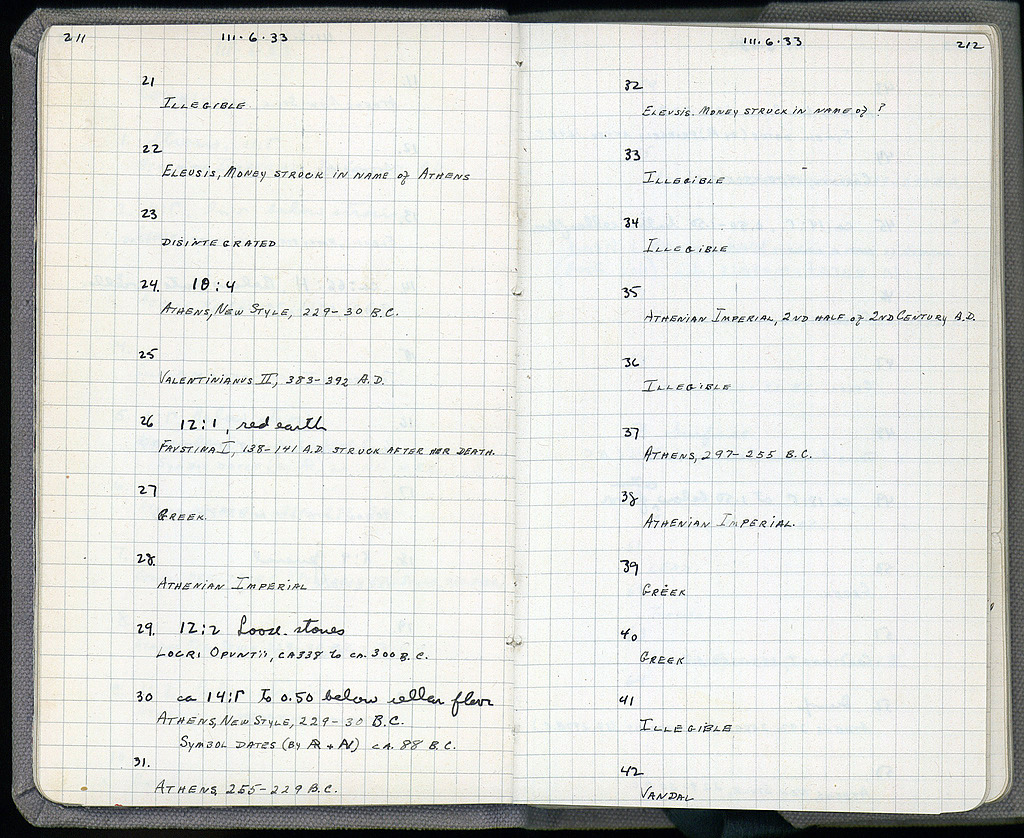 211
111·6·33
21
ILLEGIBLE
22
ELEUSIS, MONEY STRUCK IN NAME of ATHENS
23
DISINTEGRATED
24. 10:4
ATHENS, NEW STYLE, 229-30 B.C.
25
VALENTINIANUS II, 383-392 A.D.
26 12:1, red earth
FAUSTINA I, 138-141 A.D. STRUCK AFTER HER DEATH.
27
GREEK.
28.
ATHENIAN IMPERIAL
29. 12:2 Loose stones
LOCRI OPUNTII, CA 338 to CA. 300 B.C.
30 ca 14:Γ to 0.50 below cellar floor
ATHENS, NEW STYLE, 229-30 B.C.
SYMBOL DATES (BY Æ + ) CA. 88 B.C.
31.
ATHENS 255-229 B.C.
111·6·33
212
32
ELEUSIS. MONEY STRUCK IN NAME of ?
33
ILLEGIBLE
34
ILLEGIBLE
35
ATHENIAN IMPERIAL, 2ND HALF of 2ND CENTURY A.D.
36
ILLEGIBLE
37
ATHENS, 297-255 B.C.
38
ATHENIAN IMPERIAL.
39
GREEK
40
GREEK
41
ILLEGIBLE
42
VANDAL